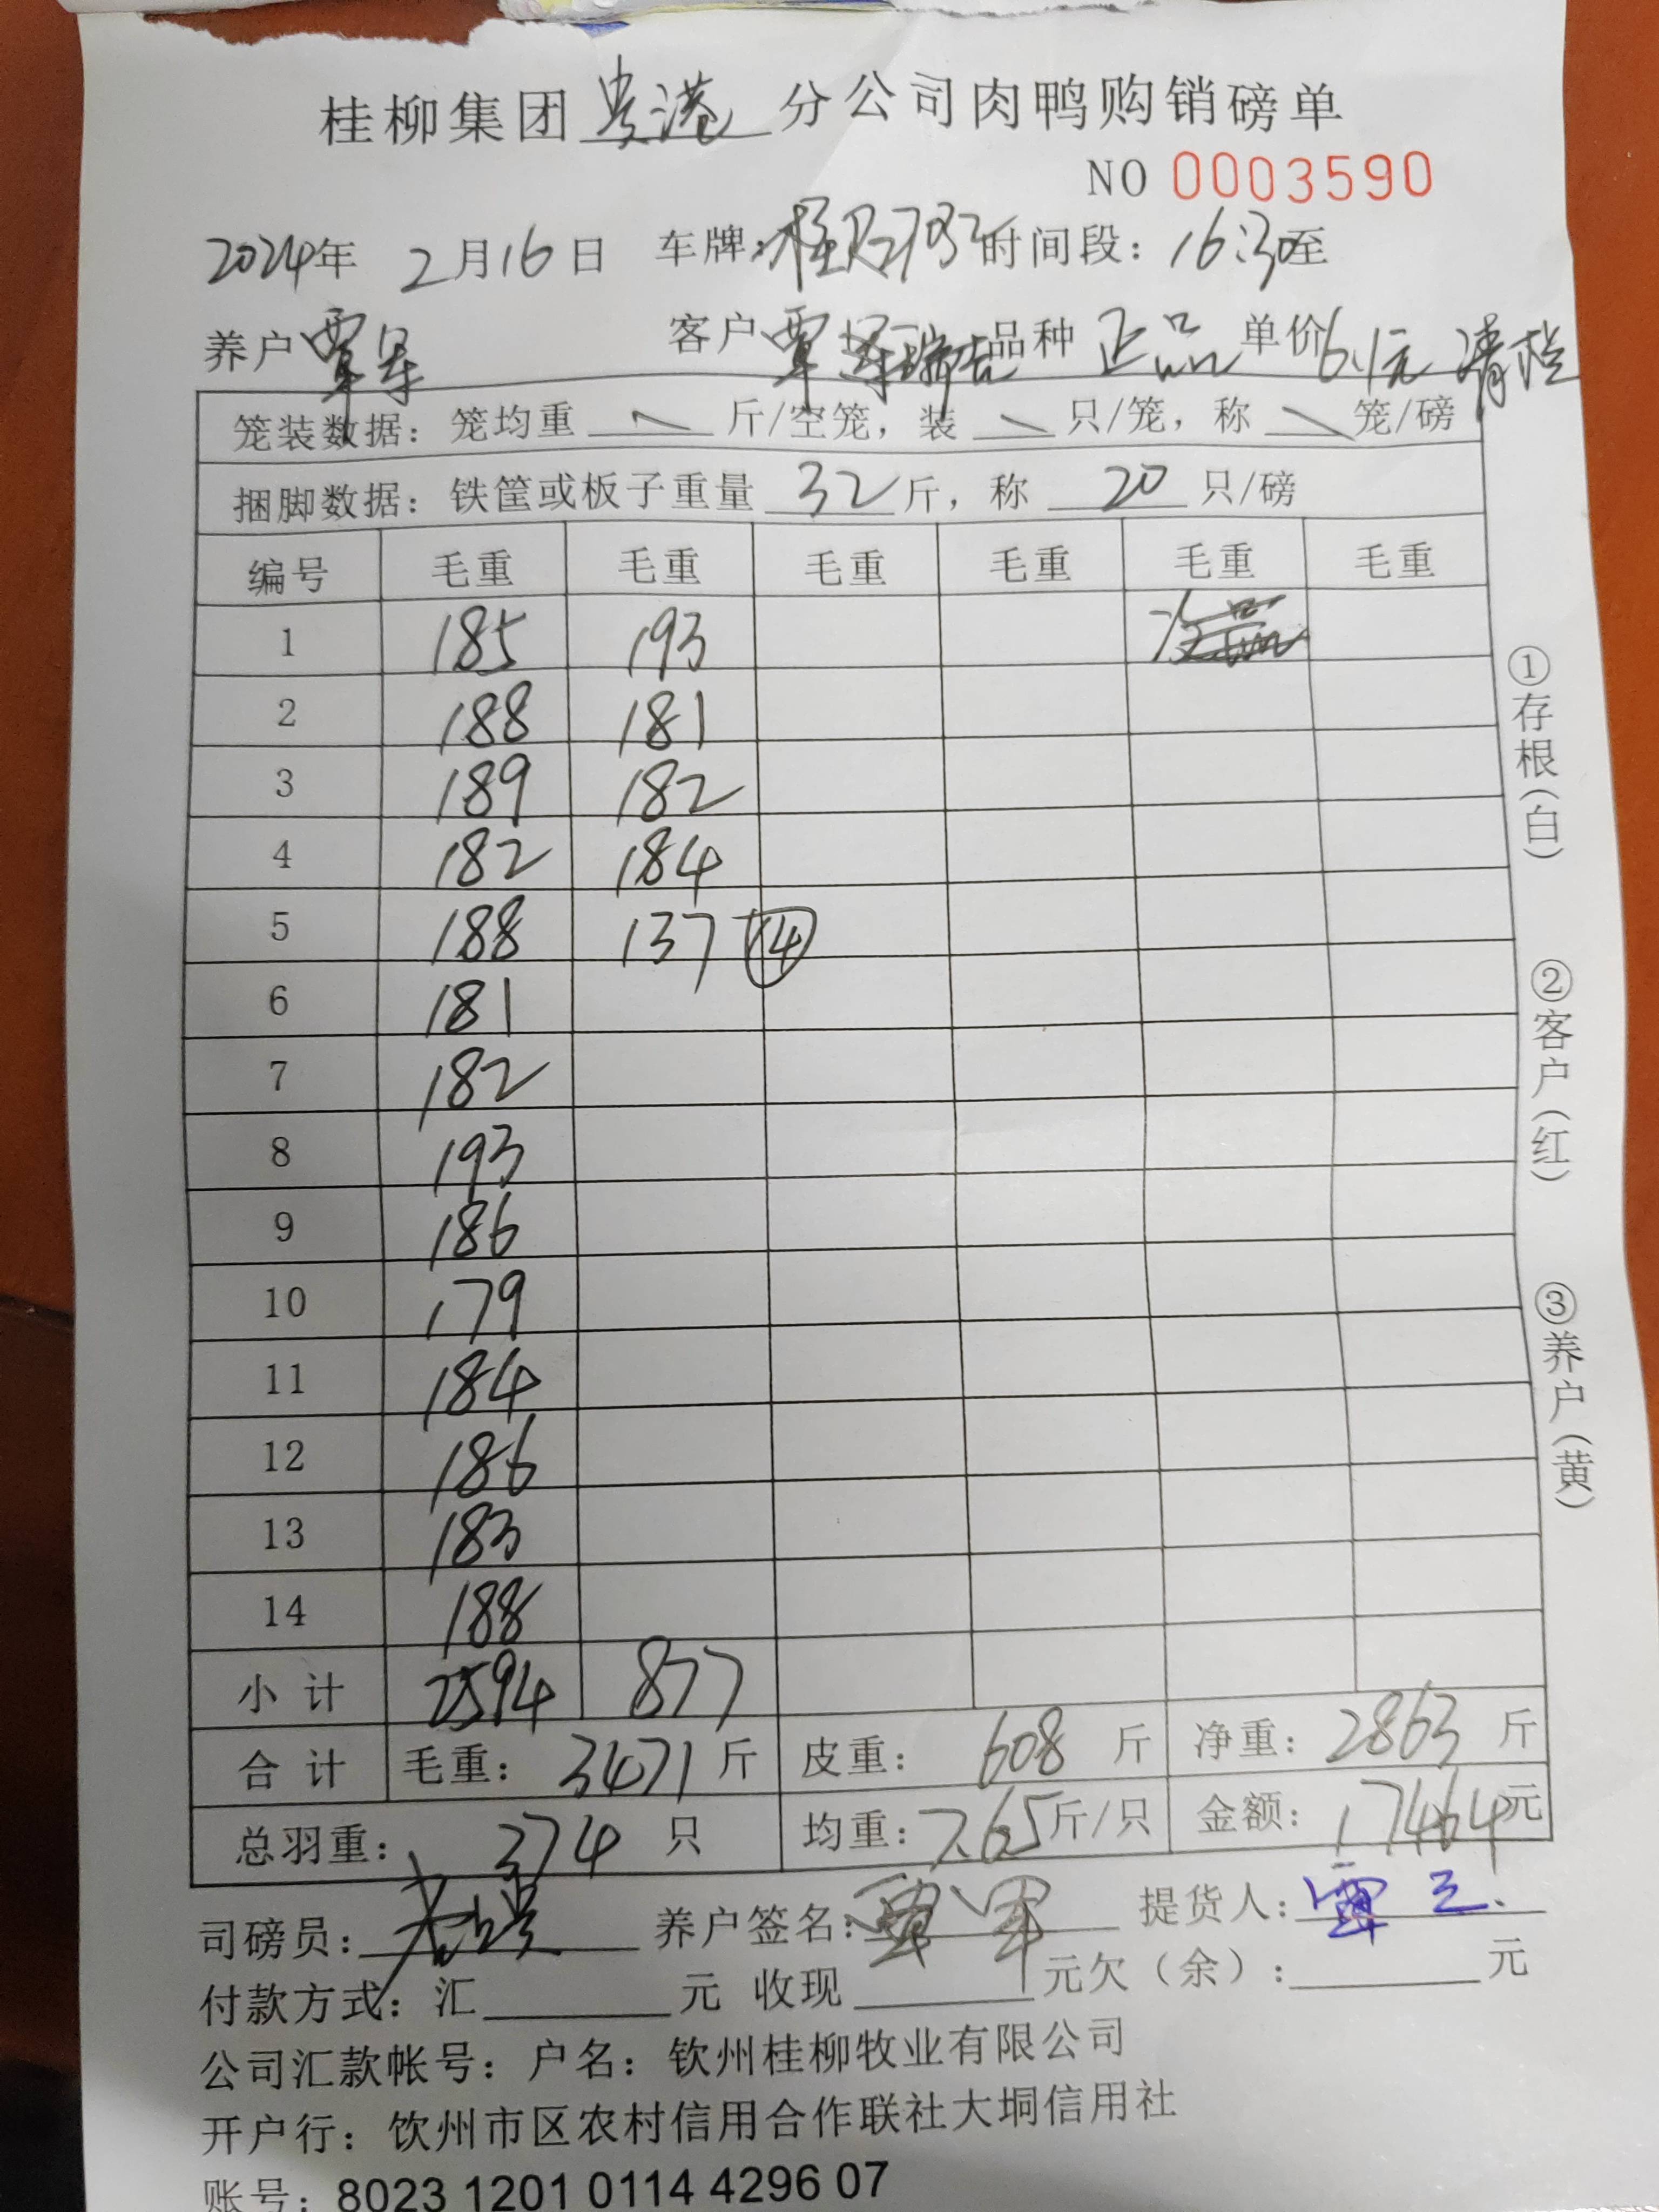 桂柳集团贵港分公司肉鸭购销磅单
NO 0003590
2024年 2月16日 车牌: 时间段: 16:30至
养户 覃军 客户 覃 品种 正品 单价6.1元
笼装数据: 笼均重 \ 斤/空笼, 装 \ 只/笼, 称 \ 笼/磅
捆脚数据: 铁筐或板子重量 32斤, 称 20 只/磅
编号 毛重 毛重 毛重 毛重 毛重 毛重
1 185 193
2 188 181
3 189 182
4 182 184
5 188 137 ⑭
6 181
7 182
8 193
9 186
10 179
11 184
12 186
13 183
14 188
小 计 2594 877
合 计 毛重: 3471斤 皮重: 608 斤 净重: 2863 斤
总羽重: 374 只 均重: 7.65斤/只 金额: 17464元
司磅员: 养户签名: 覃军 提货人: 覃
付款方式: 汇 元 收现 元欠(余): 元
公司汇款帐号: 户名: 钦州桂柳牧业有限公司
开户行: 钦州市区农村信用合作联社大垌信用社
账号: 8023 1201 0114 4296 07
①存根(白)
②客户(红)
③养户(黄)